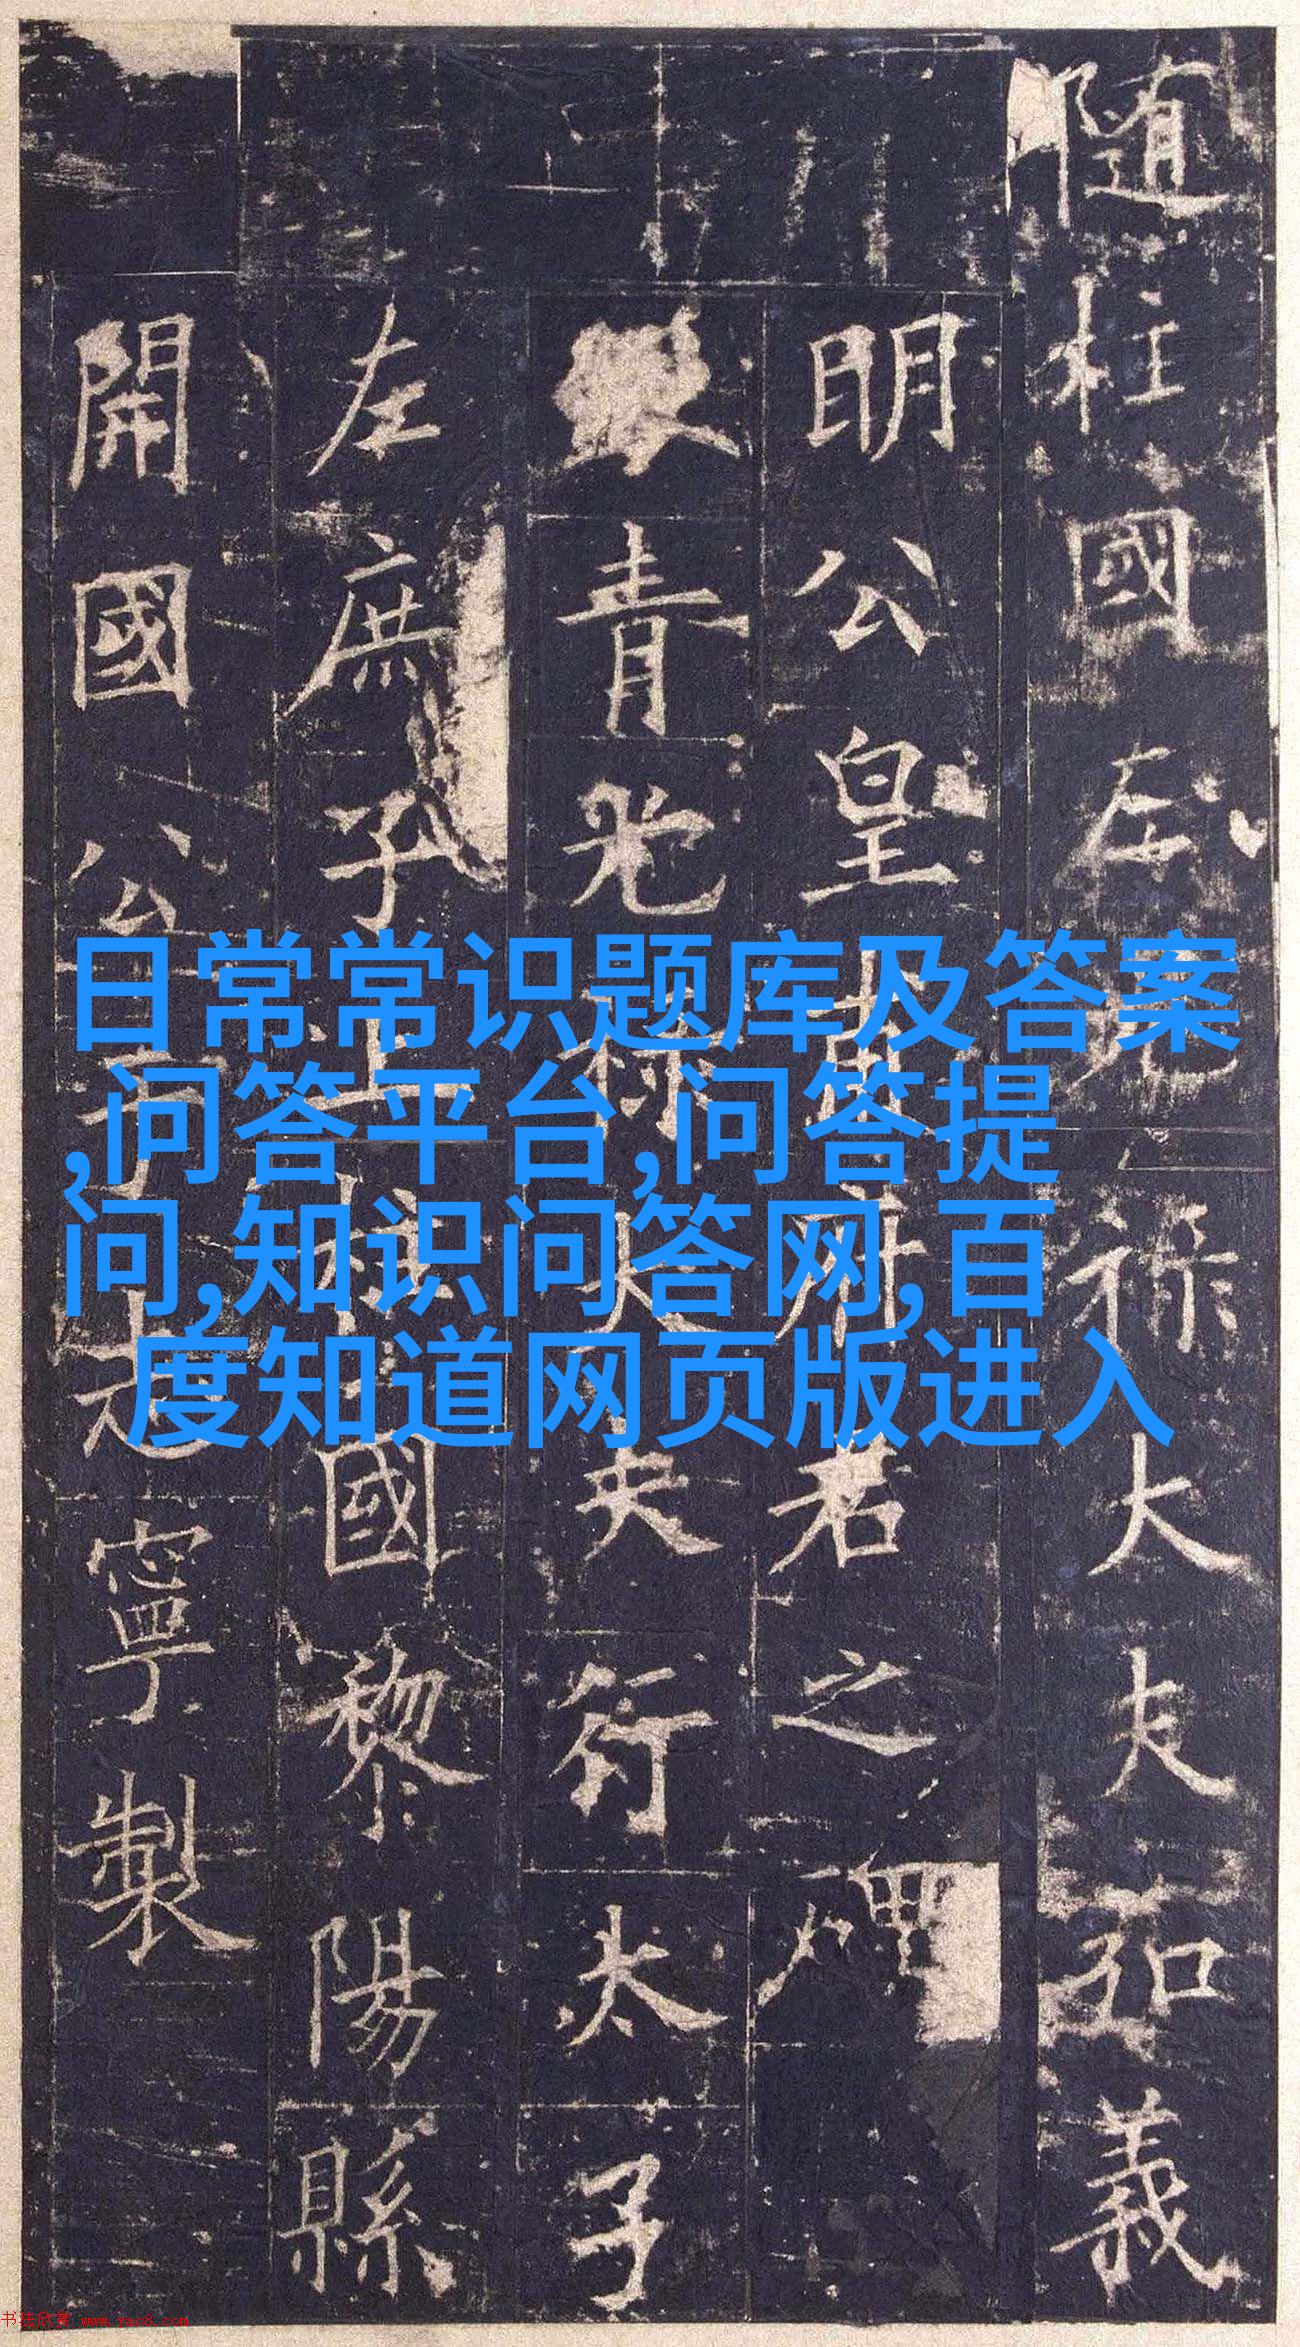 随柱國左光祿大夫弘義
明公皇甫府君之碑
銀青光祿大夫行太子
左庶子上柱國黎陽縣
開國公于志寧製
日常常识题库及答案
,问答平台,问答提
问,知识问答网,百
度知道网页版进入
书法欣赏 www.yac8.com